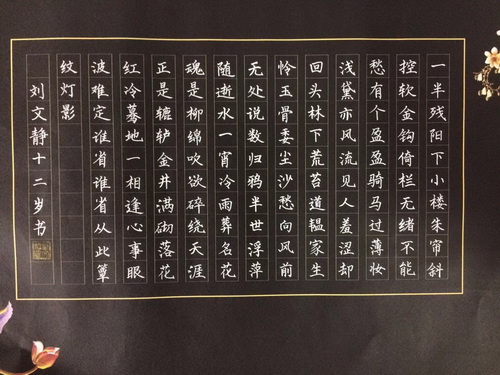 一半残阳下小楼朱帘斜
控软金钩倚栏无绪不能
愁有个盈盈骑马过薄妆
浅黛亦风流见人羞涩却
回头林下荒苔道韫家生
怜玉骨委尘沙愁向风前
无处说数归鸦半世浮萍
随逝水一宵冷雨葬名花
魂是柳绵吹欲碎绕天涯
正是辘轳金井满砌落花
红冷蓦地一相逢心事眼
波难定谁省谁省从此簟
纹灯影
刘文静十二岁书